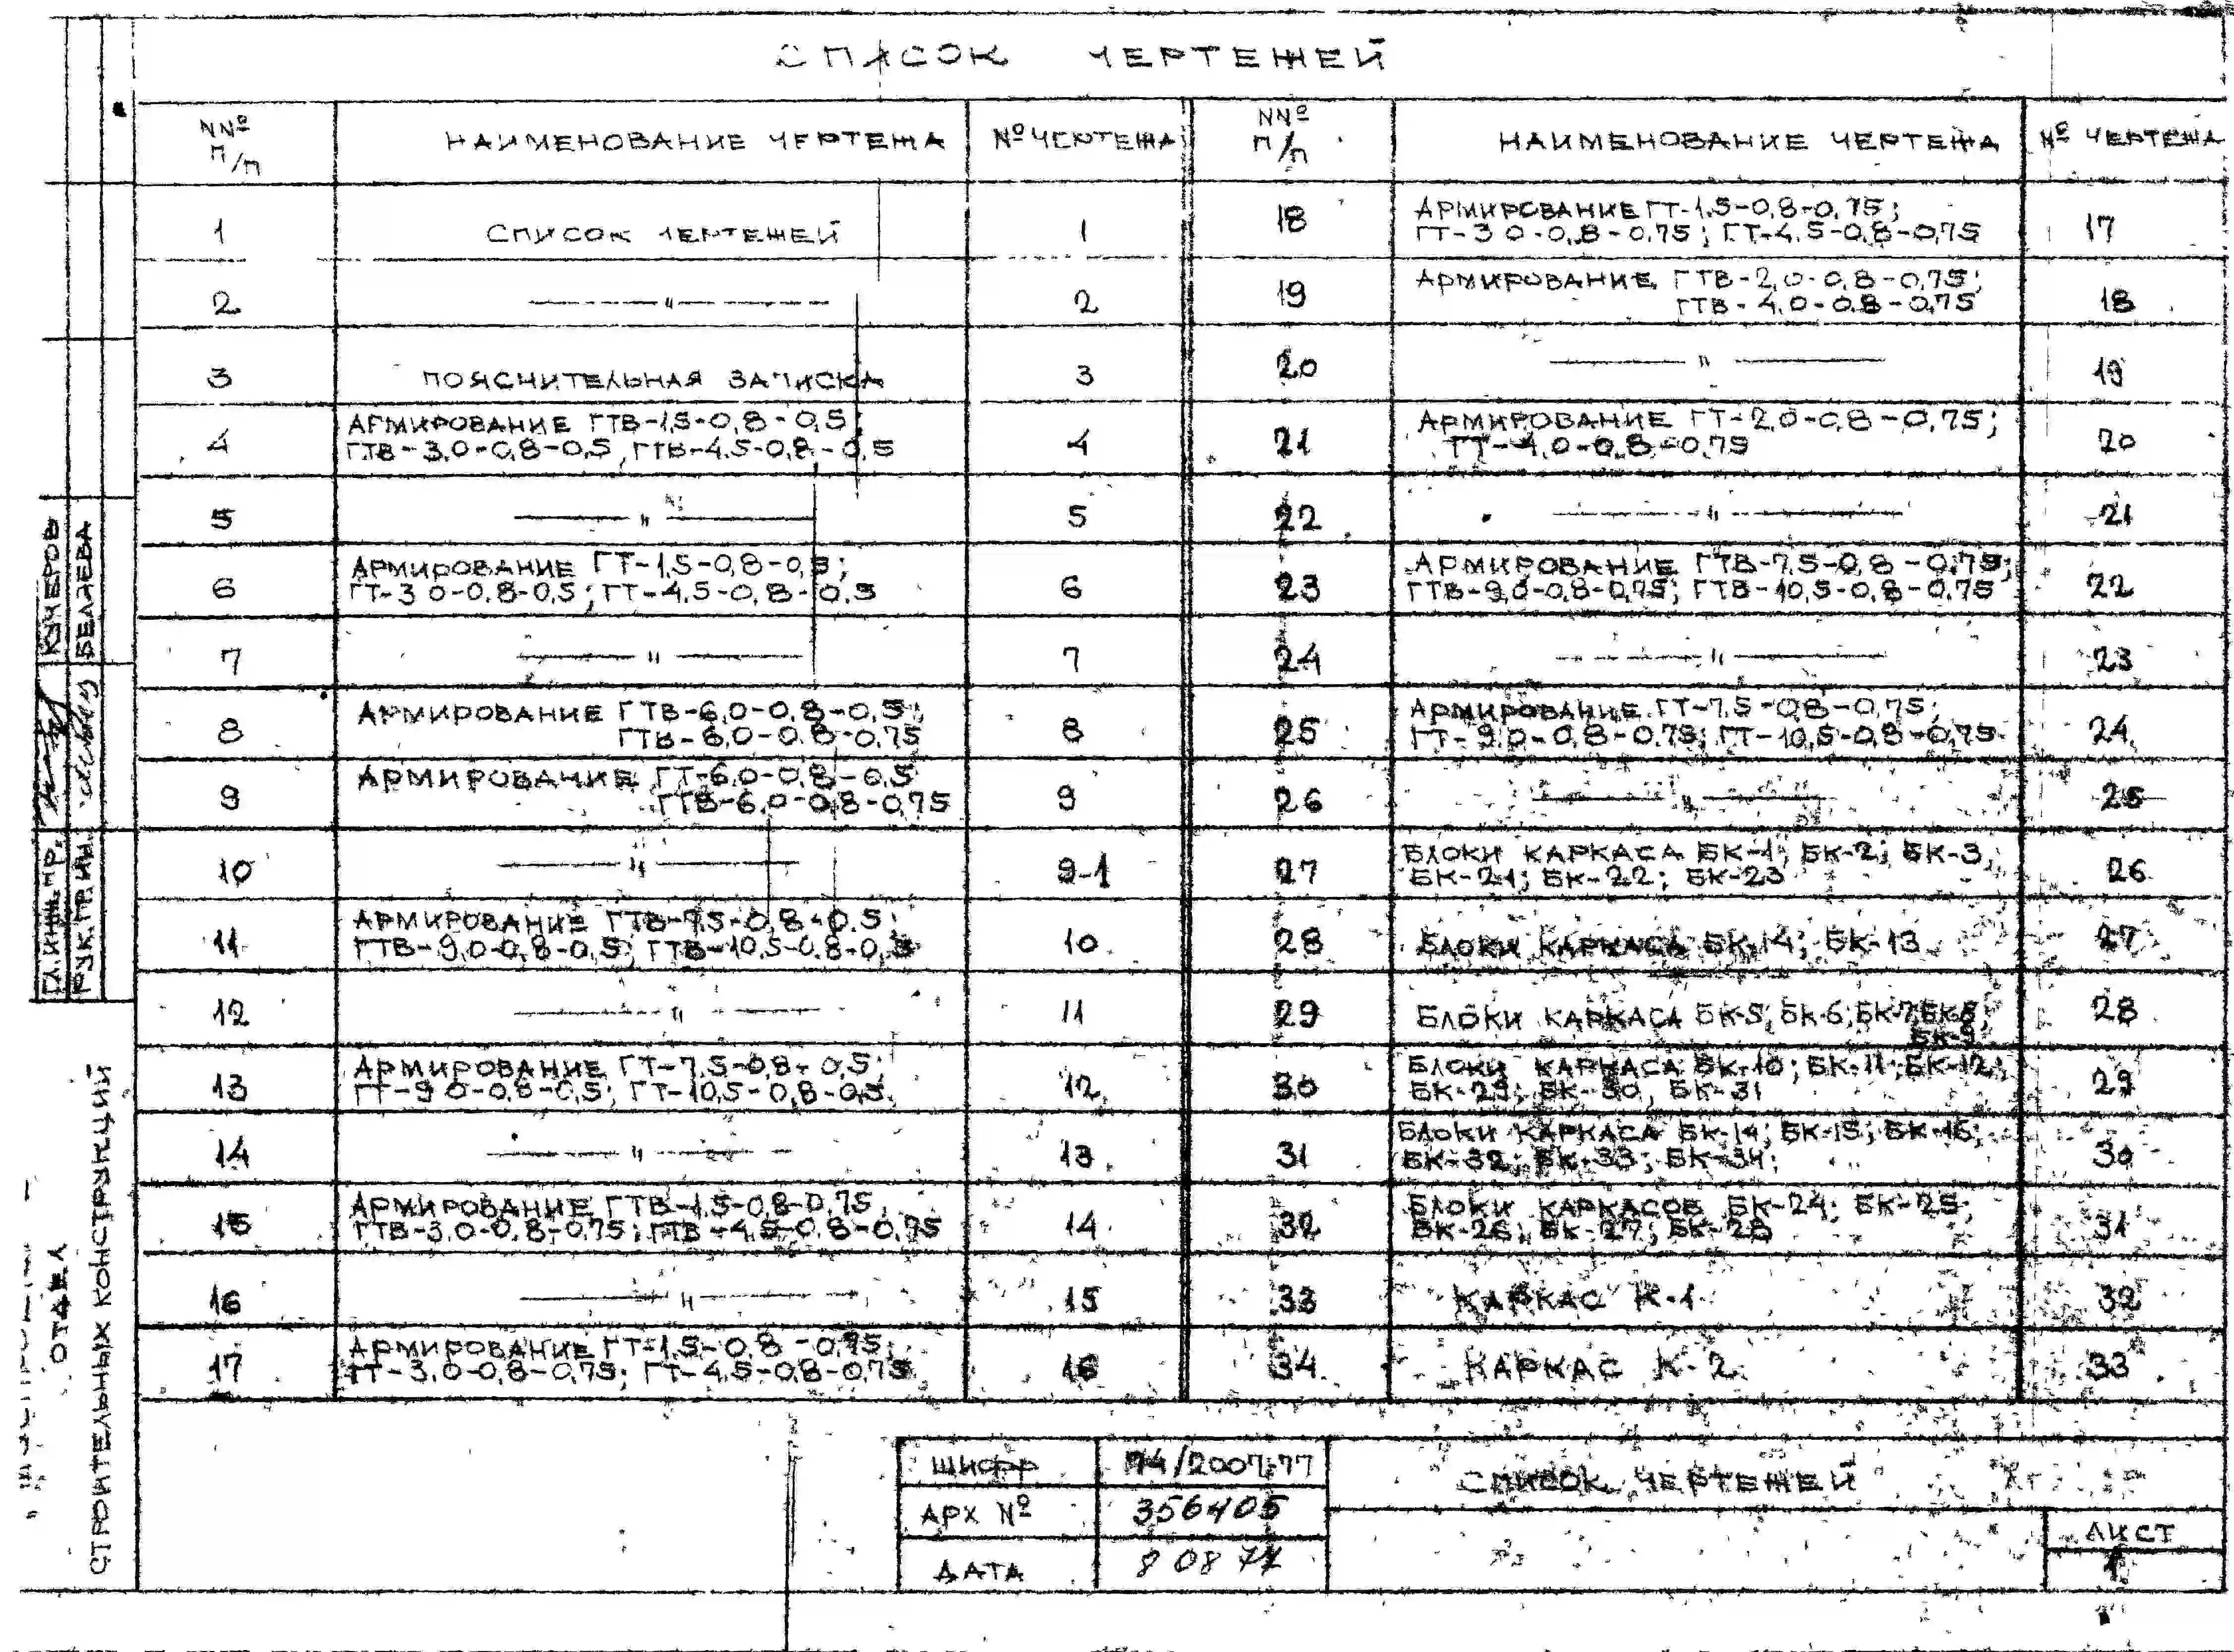 СПИСОК ЧЕРТЕЖЕЙ
NNº П/П
НАИМЕНОВАНИЕ ЧЕРТЕЖА
Nº ЧЕРТЕЖА
NNº П/П
НАИМЕНОВАНИЕ ЧЕРТЕЖА
Nº ЧЕРТЕЖА
1 СПИСОК ЧЕРТЕЖЕЙ 1
2 —"— 2
3 ПОЯСНИТЕЛЬНАЯ ЗАПИСКА 3
4 АРМИРОВАНИЕ ГТВ-1,5-0,8-0,5;
ГТВ-3,0-0,8-0,5, ГТВ-4,5-0,8-0,5 4
5 —"— 5
6 АРМИРОВАНИЕ ГТ-1,5-0,8-0,5;
ГТ-3 0-0,8-0,5; ГТ-4,5-0,8-0,5 6
7 —"— 7
8 АРМИРОВАНИЕ ГТВ-6,0-0,8-0,5;
ГТВ-6,0-0,8-0,75 8
9 АРМИРОВАНИЕ ГТ-6,0-0,8-0,5
ГТВ-6,0-0,8-0,75 9
10 —"— 9-1
11 АРМИРОВАНИЕ ГТВ-7,5-0,8-0,5;
ГТВ-9,0-0,8-0,5; ГТВ-10,5-0,8-0,5 10
12 —"— 11
13 АРМИРОВАНИЕ ГТ-7,5-0,8-0,5;
ГТ-9 0-0,8-0,5; ГТ-10,5-0,8-0,5 12
14 —"— 13
15 АРМИРОВАНИЕ ГТВ-1,5-0,8-0,75;
ГТВ-3,0-0,8-0,75; ГТВ-4,5-0,8-0,75 14
16 —"— 15
17 АРМИРОВАНИЕ ГТ-1,5-0,8-0,75;
ГТ-3,0-0,8-0,75; ГТ-4,5-0,8-0,75 16
18 АРМИРОВАНИЕ ГТ-1,5-0,8-0,75;
ГТ-3 0-0,8-0,75; ГТ-4,5-0,8-0,75 17
19 АРМИРОВАНИЕ ГТВ-2,0-0,8-0,75;
ГТВ-4,0-0,8-0,75 18
20 —"— 19
21 АРМИРОВАНИЕ ГТ-2,0-0,8-0,75;
ГТ-4,0-0,8-0,75 20
22 —"— 21
23 АРМИРОВАНИЕ ГТВ-7,5-0,8-0,75;
ГТВ-9,0-0,8-0,75; ГТВ-10,5-0,8-0,75 22
24 —"— 23
25 АРМИРОВАНИЕ ГТ-7,5-0,8-0,75;
ГТ-9,0-0,8-0,75; ГТ-10,5-0,8-0,75 24
26 —"— 25
27 БЛОКИ КАРКАСА БК-1; БК-2; БК-3;
БК-21; БК-22; БК-23 26
28 БЛОКИ КАРКАСА БК-14; БК-13 27
29 БЛОКИ КАРКАСА БК-5; БК-6; БК-7; БК-8;
БК-9 28
30 БЛОКИ КАРКАСА БК-10; БК-11; БК-12;
БК-29; БК-30, БК-31 29
31 БЛОКИ КАРКАСА БК-14; БК-15; БК-16;
БК-32; БК-33; БК-34; 30
32 БЛОКИ КАРКАСОВ БК-24; БК-25
БК-26; БК-27; БК-28 31
33 КАРКАС К-1 32
34 КАРКАС К-2 33
ШИФР 74/2007-77
АРХ Nº 356405
ДАТА 8 08 77
СПИСОК ЧЕРТЕЖЕЙ
ЛИСТ
1
ГЛ. ИНЖ. ПР. КУЧЕРОВ
РУК. ГР. ИН. БЕЛЯЕВА
ОТДЕЛ
СТРОИТЕЛЬНЫХ КОНСТРУКЦИЙ